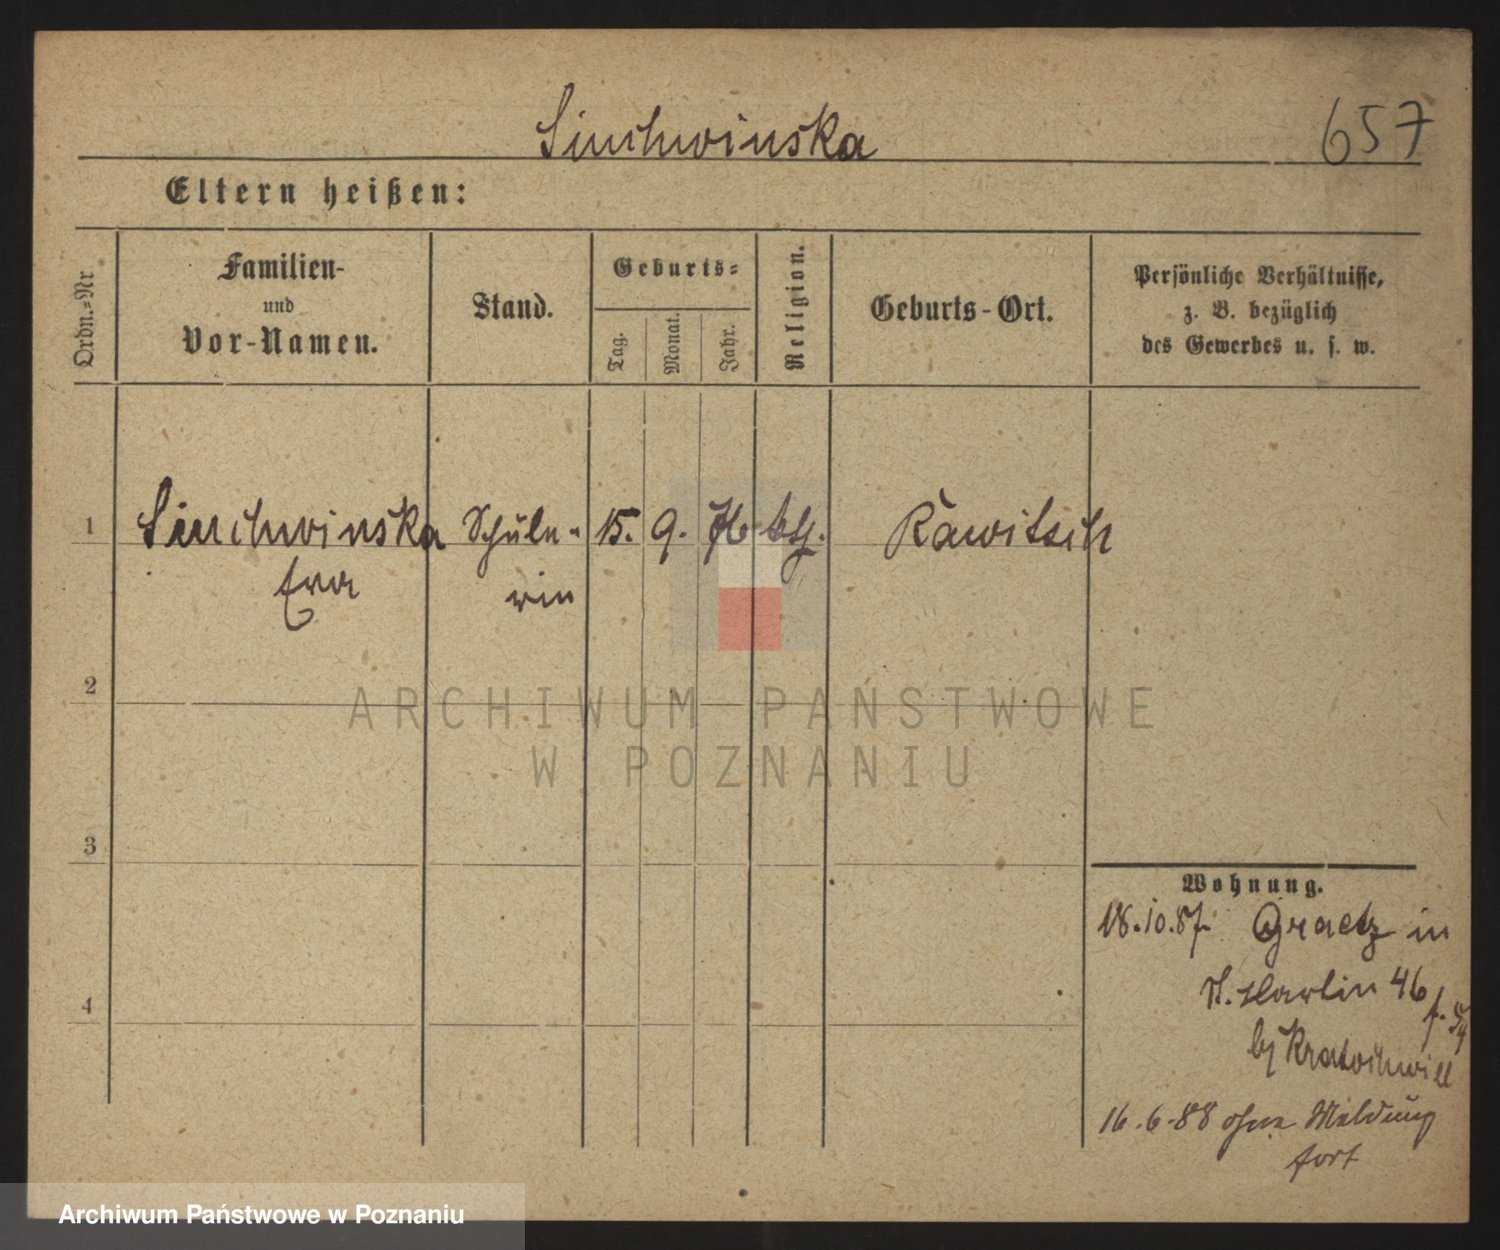 Sinchwinska
657
Eltern heißen:
Ordn.=Nr
Familien-
und
Vor-Namen.
Stand.
Geburts=
Tag.
Monat.
Jahr.
Religion.
Geburts-Ort.
Persönliche Verhältnisse,
z. B. bezüglich
des Gewerbes u. s. w.
1 Sinchwinska Schüle- 15. 9. 76 Rawitsch
Eva rin
2
3
4
Wohnung.
18.10.87. Graetz in
St. Martin 46
bj Kratochwill
16.6.88 ohne Meldung
fort
ARCHIWUM PAŃSTWOWE
W POZNANIU
Archiwum Państwowe w Poznaniu